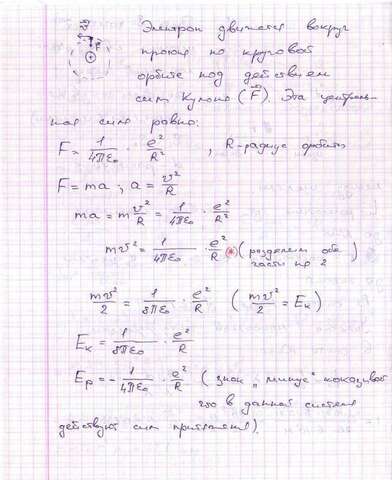 v
F
Электрон движется вокруг
протона по круговой
орбите под действием
сил Кулона (F⃗). Эта централь-
ная сила равна:
F = 1/4πε₀ · e²/R² , R-радиус орбиты
F = ma ; a = v²/R
ma = m v²/R = 1/4πε₀ · e²/R²
mv² = 1/4πε₀ · e²/R (разделим обе части на 2)
mv²/2 = 1/8πε₀ · e²/R (mv²/2 = Eк)
Eк = 1/8πε₀ · e²/R
Ep = - 1/4πε₀ · e²/R (знак „минус"
что в данной системе
действуют силы притяжения).